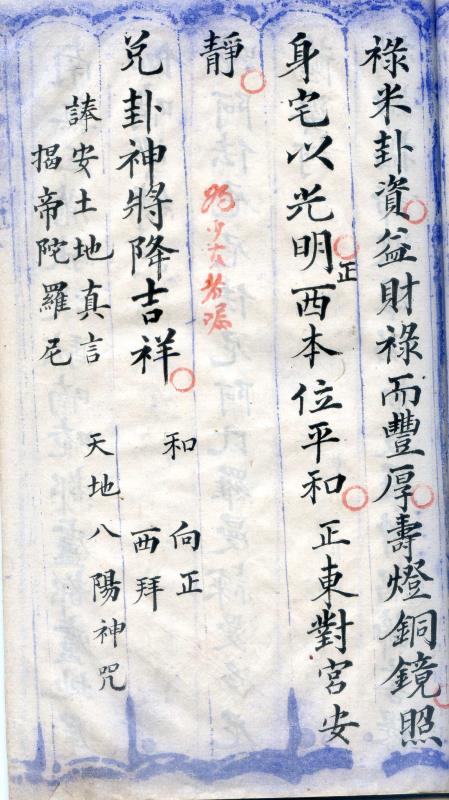 祿米卦資益財祿而豐厚壽燈銅鏡照
身宅以光明正西本位平和正東對宮安
靜
兌卦神將降吉祥
和
向正
西拜
諫安土地真言
天地八陽神咒
揭帝陀羅尼